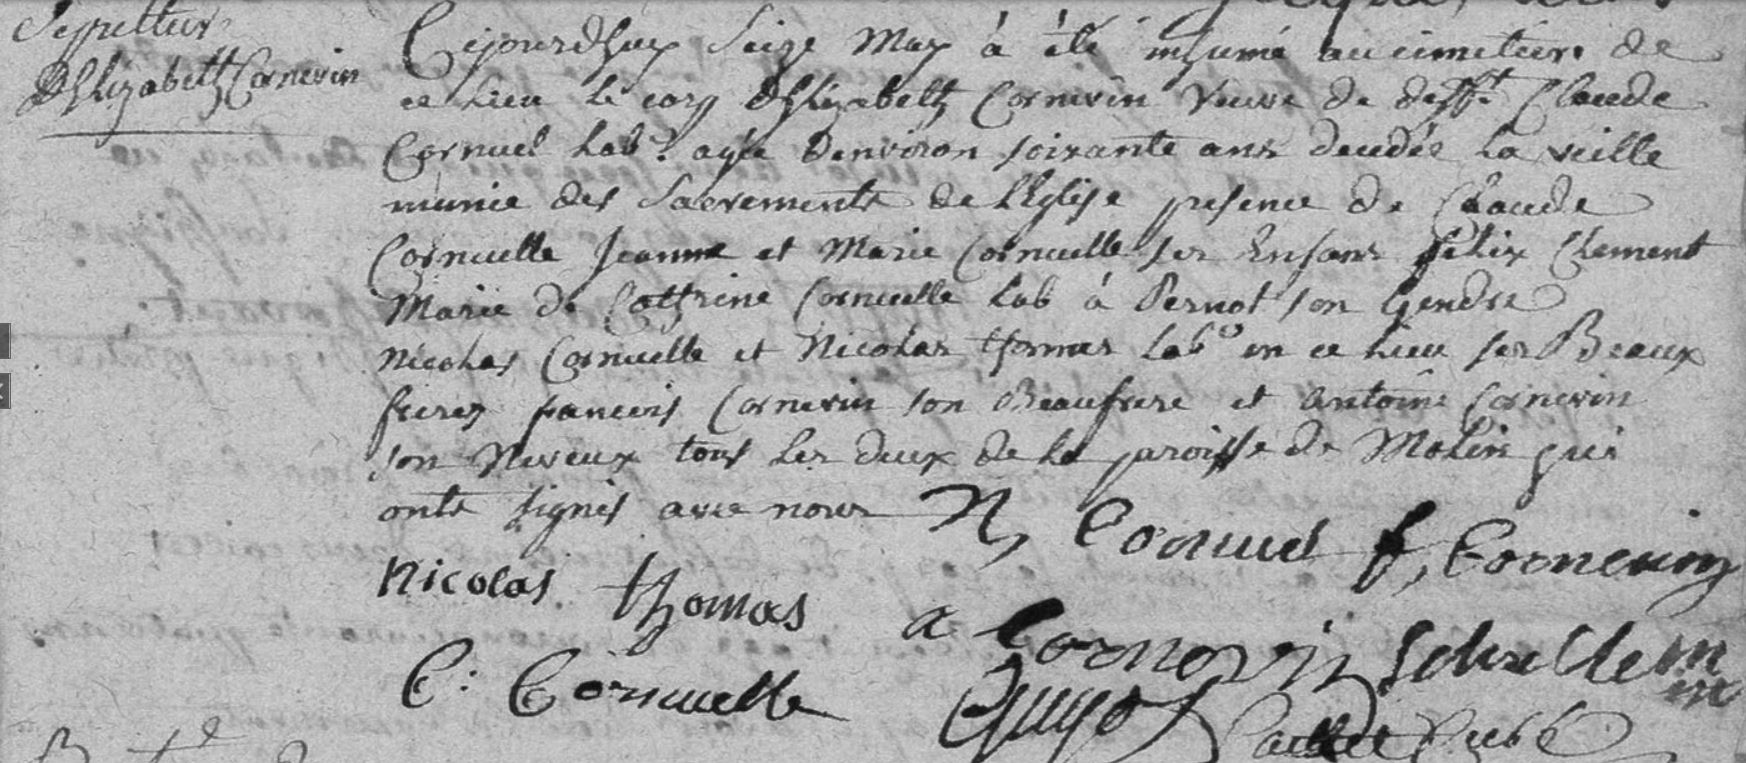 Sepultur
D'Elizabeth Cornevin
Cejourdhuy Seize May à été inhumé au cimetiere de
ce Lieu le corp D'Elizabeth Cornevin Veuve de defft. Claude
Cornuel Labr. agée Denviron soixante ans decedée La veille
munie des Sacrements de L'Eglise presence de Claude
Cornuelle Jeanne et Marie Cornuelle ses Enfans felix Clement
Marie de Cathrine Cornuelle Lab à Pernot son Gendre
Nicolas Cornuelle et Nicolas thomas Labr en ce Lieu ses Beaux
freres francois Cornevin son Beaufrere et Antoine Cornevin
son Neveux tous Les deux de la paroisse de Molin qui
onts signés avec nous N, Cornuel f, Cornevin
Nicolas thomas a Cornevin felix Clem
C: Cornuelle Guyot Curé